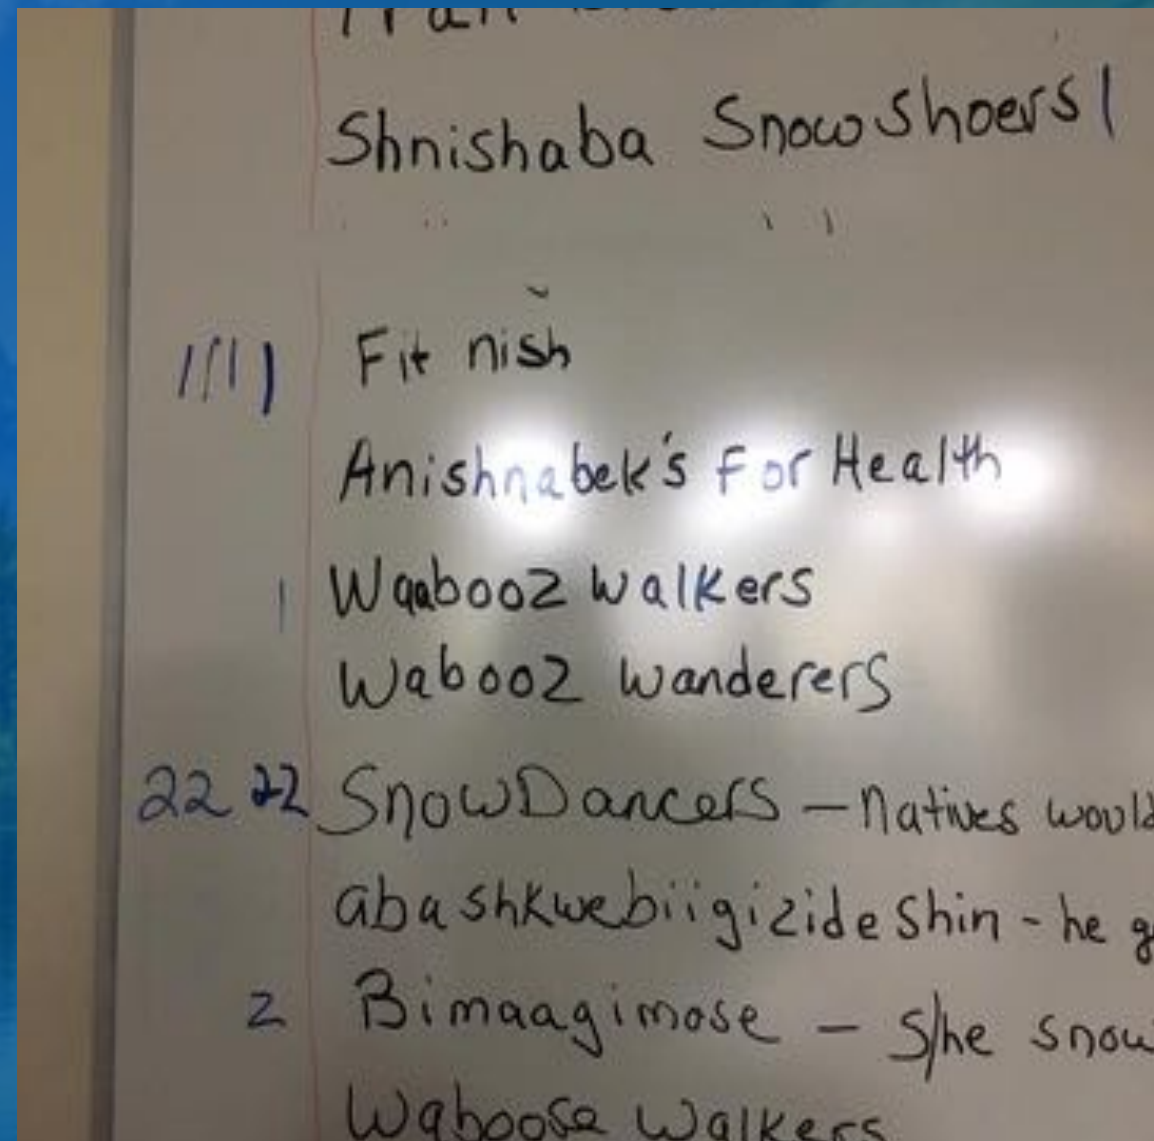 Shnishaba Snowshoers |
|||| Fit nish
Anishnabek's For Health
| Waabooz Walkers
Wabooz Wanderers
22 22 SnowDancers – Natives would
abashkwebiigizideshin - he g
2 Bimaagimose – S/he snow
Waboose Walkers